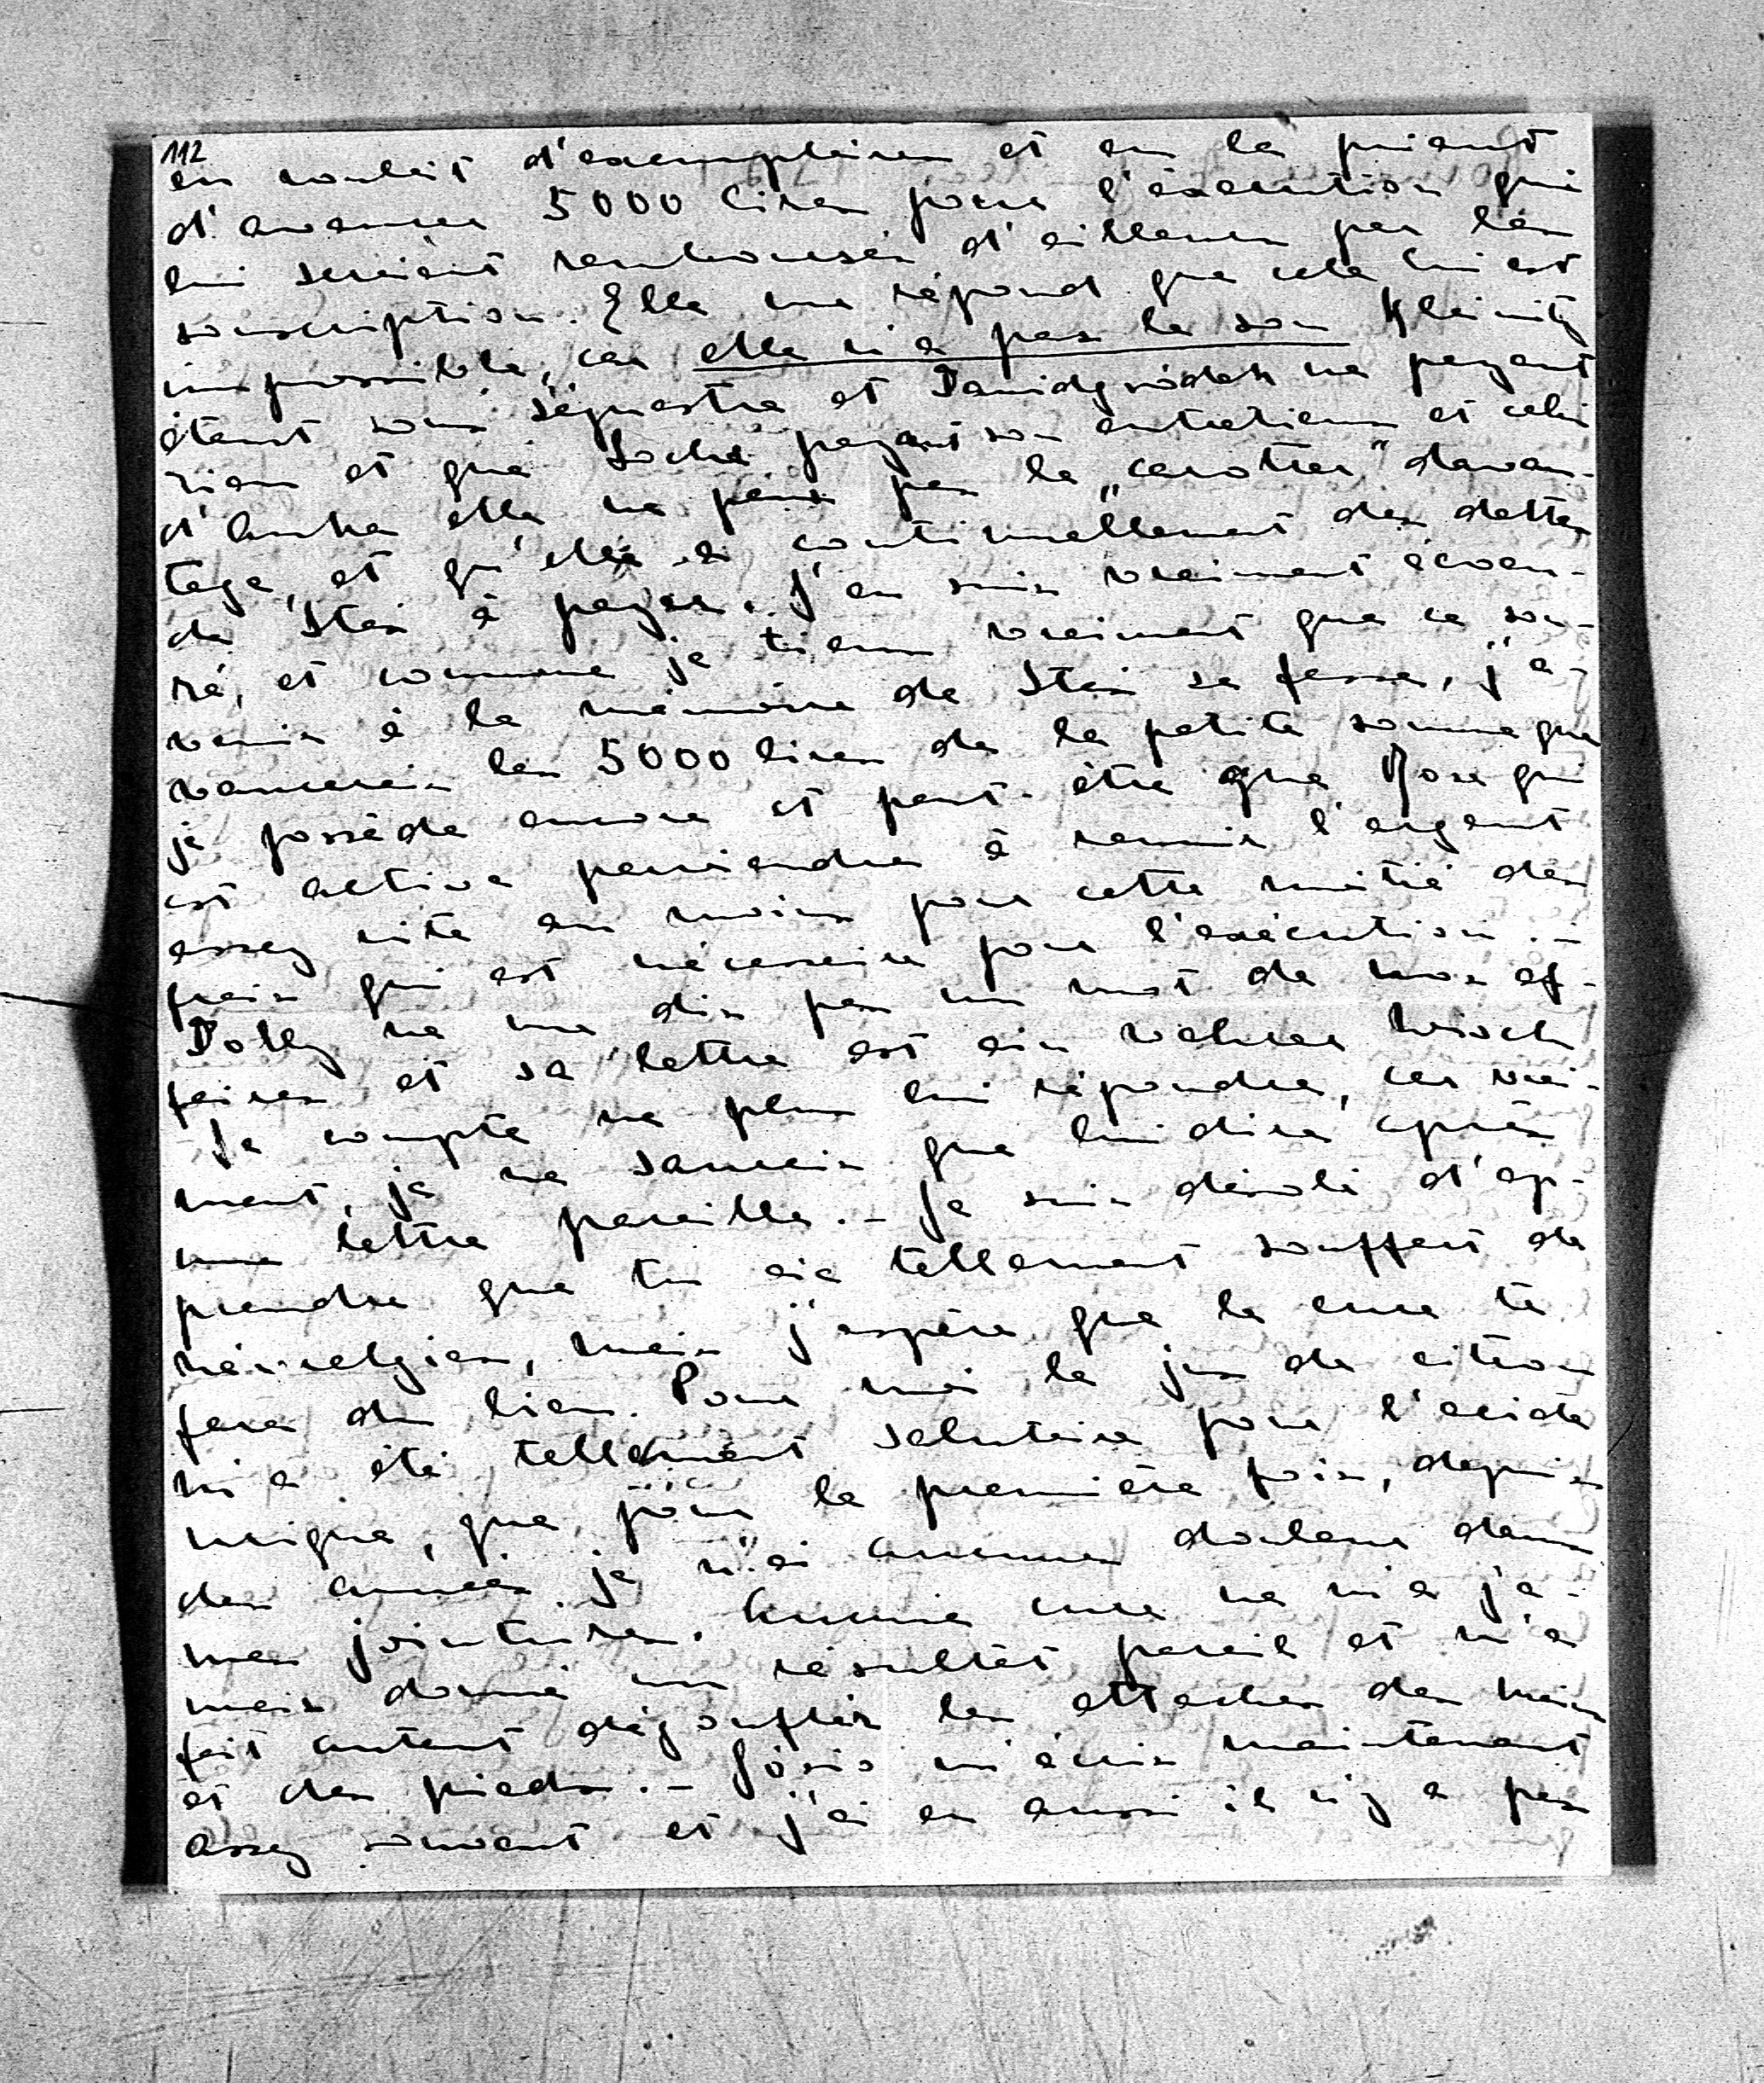 112
en voulait d'exemplaires et en la priant
d'avancer 5000 lires pour l'exécution qui
lui seraient remboursés d'ailleurs par les
souscription. Elle me répond que cela lui est
impossible, car elle n'a pas le sou Kleinitz
étant sous séquestre et Dawidgródek ne payant
rien et que Loche payant son entretien et celui
d'Anka elle ne peut pas le „carotter" davan-
tage, et qu'elle a continuellement des dettes
de Stas à payer. J'en suis vraiment écoeu-
ré, et comme je tiens vraiment que ce sou-
venir à la mémoire de Stas se fasse, j'a-
vancerais les 5000 lires de la petite somme que
je possède encore et peut-être que Rose qui
est active parviendra à reunir l'argent
assez vite au moins pour cette moitié des
frais qui est nécessaire pour l'exécution.-
Dolly ne me dis pas un mot de mes af-
faires et sa lettre est ein wahrer Wisch
Je compte ne plus lui répondre, car vrai-
ment, je ne saurais que lui dire après
une lettre pareille.- Je suis désolé d'ap-
prendre que tu aie tellement souffert de
névralgies, mais j'espère que la cure te
fera du bien. Pour moi le jus de citron
m'a été tellement salutaire pour l'acide
urique, que pour la première fois, depuis
des années je n'ai aucunes douleur dans
mes jointures. Aucune cure ne m'a ja-
mais donné un résultat pareil et m'a
fait autant dégonfler les attaches des mains
et des pieds.- Józio m'écris maintenant
assez souvent et j'ai eu aussi il n'y a pas